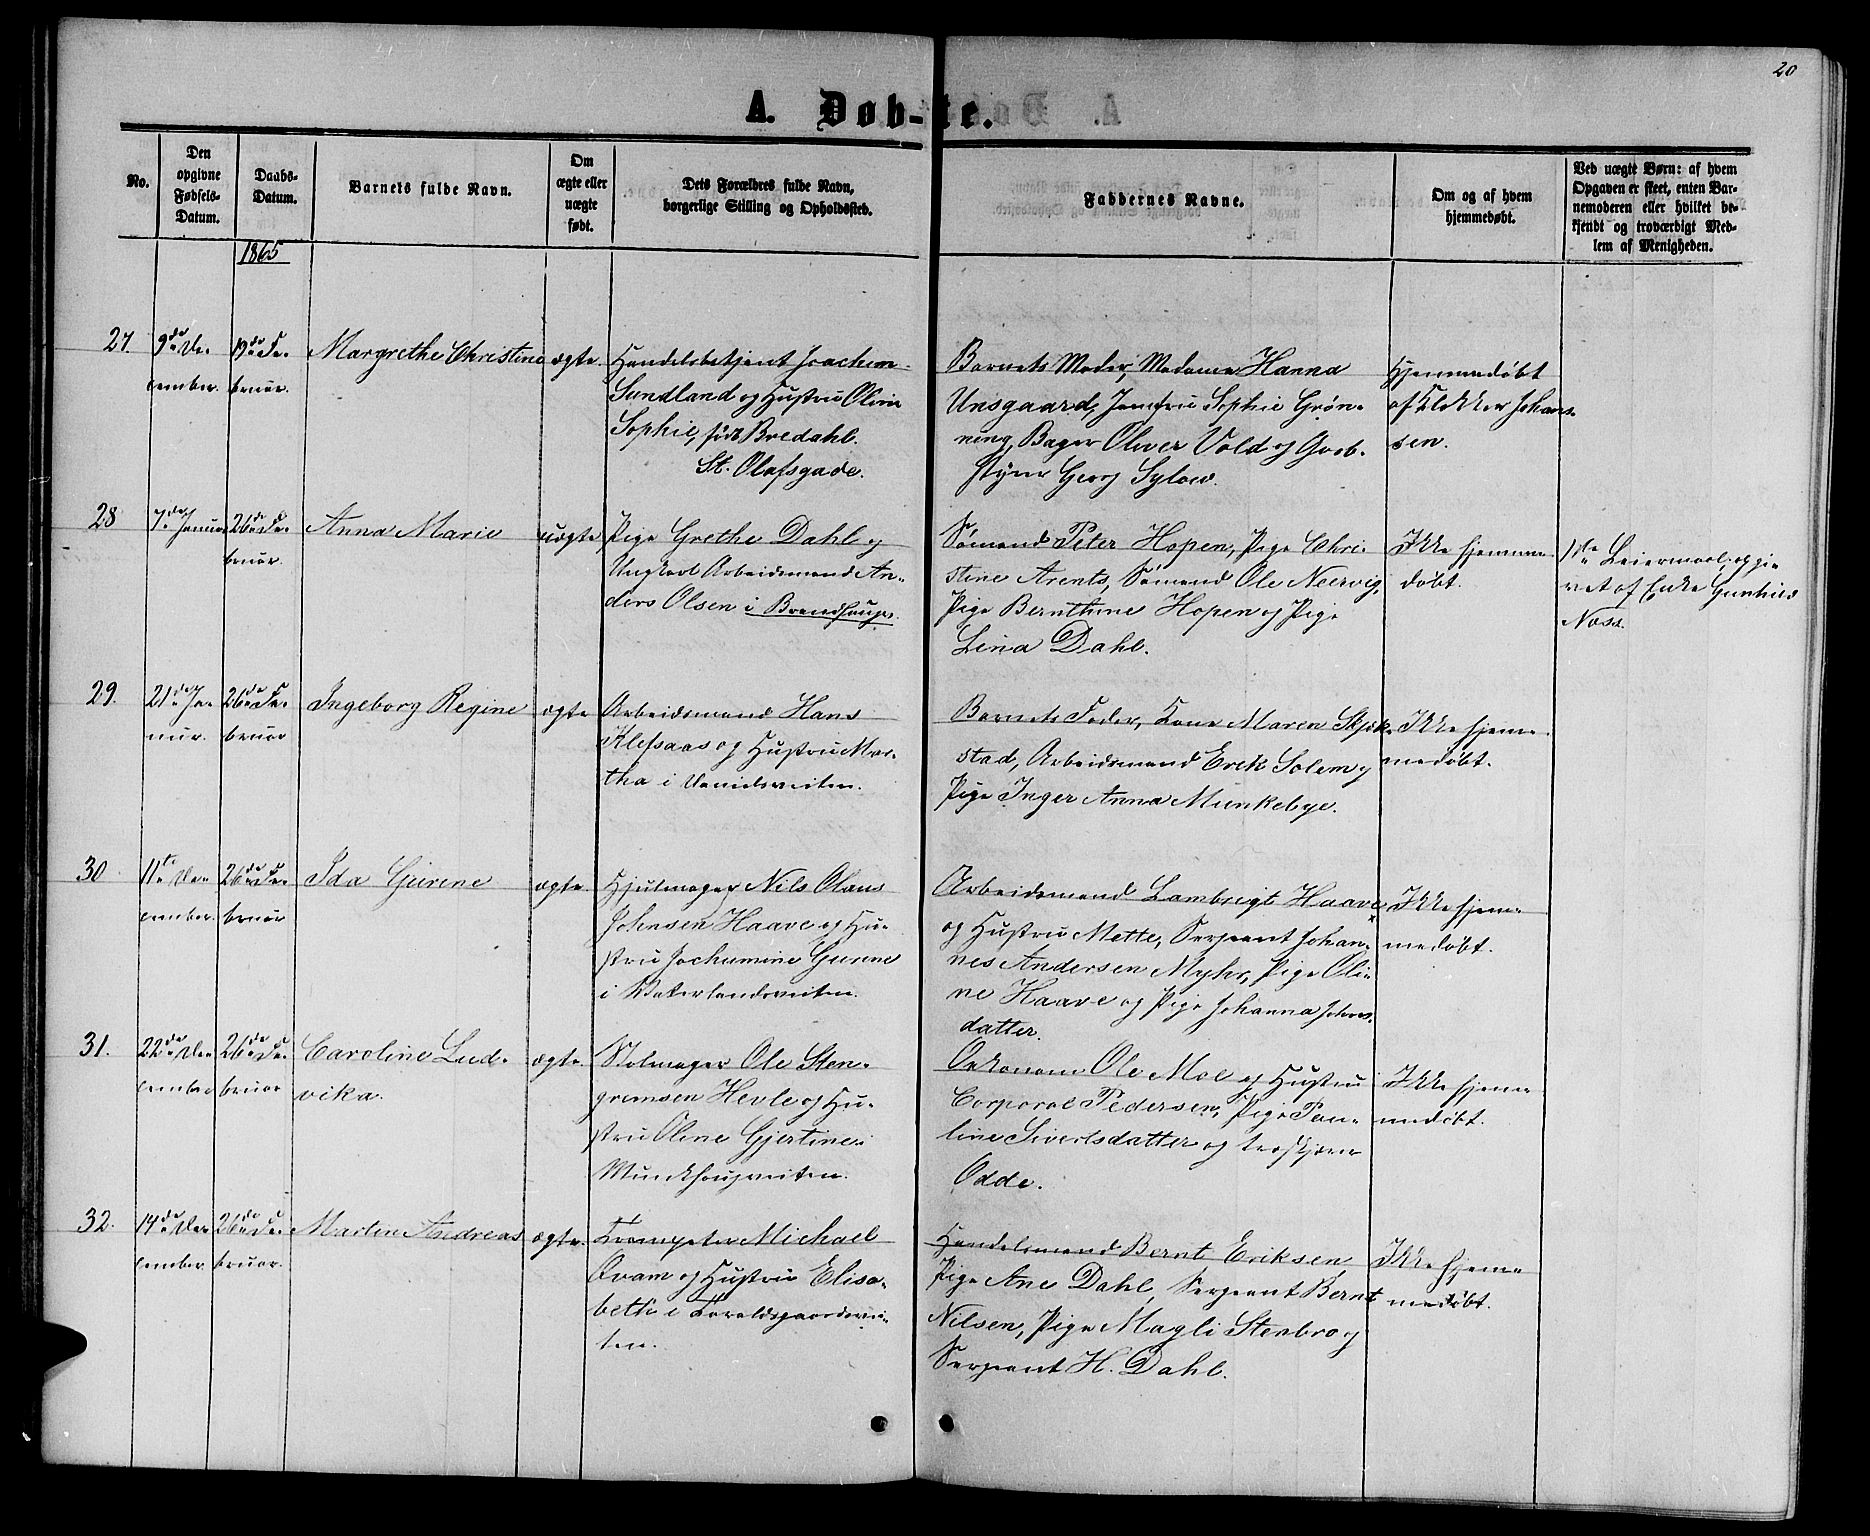 20
A. Døb-te.
No.
Den opgivne Fødsels-Datum.
Daabs-Datum.
Barnets fulde Navn.
Om ægte eller uægte født.
Dets Forældres fulde Navn, borgerlige Stilling og Opholdssted.
Faddernes Navne.
Om og af hvem hjemmedøbt.
Ved uægte Børn: af hvem Opgaven er skeet, enten Barnemoderen eller hvilket bekjendt og troværdigt Medlem af Menigheden.
1865
27.
9de De-
cember.
19de Fe-
bruar.
Margrethe Christine
ægte.
Handelsbetjent Joachim
Sundland og Hustru Olivia
Sophie, født Bredahl.
St. Olafsgade.
Barnets Moder, Madame Hanna
Unsgaard, Jomfru Sophie Grøn-
ning, Bager Oliver Vold og
Georg Sylow.
Hjemmedøbt
af Klokker Johan-
sen.
28
7de Januar
26de Fe-
bruar.
Anna Marie
uægte
Pige Grethe Dahl og
Ungkarl Arbeidsmand An-
ders Olsen i Brandhaugv.
Sømand Peter Hopen, Pige Chri-
stine Arents, Sømand Ole Neervig,
Pige Bernthine Hopen og Pige
Lina Dahl.
Ikke hjemme-
døbt.
1ste Leiermaal opgi-
vet af Enke Gunhild
Næss.
29.
21de Ja-
nuar.
26de Fe-
bruar
Ingeborg Regine
ægte
Arbeidsmand Hans
Klefsaas og Hustru Mar-
tha i
Barnets Fader, Kone Maren Skjek-
stad, Arbeidsmand Erik Solem og
Pige Inger Anna Munkebye.
Ikke hjem-
medøbt.
30
11te De-
cember.
26de Fe-
bruar
Ida Gurine
ægte.
Hjulmager Nils Olaus
Johnsen Haave og Hu-
stru Jochumine Gurine
i Vaterlandsveiten.
Arbeidsmand Lambrigt Haave
og Hustru Mette, Sergeant Johan-
nes Andersen Myhr, Pige Oli-
ne Haave og Pige Johanna Johns-
datter.
Ikke hjem-
medøbt.
31.
22de De-
cember
26de Fe-
bruar
Caroline Lud-
vika.
ægte.
Stolmager Ole Sten-
gremsen Hevle og Hu-
stru Oline Gjertine i
Munkhougveiten.
Oekonom Ole Moe og Hustru
Corporal Pedersen, Pige Pau-
line Sivertsdatter og
Odde.
Ikke hjem-
medøbt.
32.
14de De-
cember
26de Fe-
bruar.
Martin Andreas
ægte.
Trompeter Michael
Qvam og Hustru Elisa-
beth i Taraldsgaardsvei-
ten.
Handelsmand Bernt Eriksen,
Pige Ane Dahl, Sergeant Bernt
Nilsen, Pige Magli Stenbro og
Sergeant H. Dahl.
Ikke hjem-
medøbt.